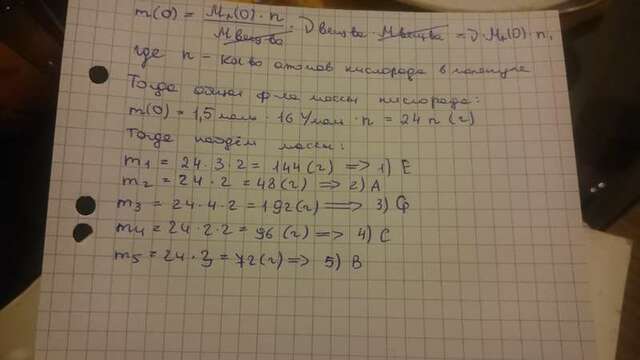 m(O) = Mr(O) · n / Mвещва · ν вещва · Mвещва = ν · Mr(O) · n,
где n - кол-во атомов кислорода в молекуле
Тогда общая ф-ла массы кислорода:
m(O) = 1,5 моль · 16 г/моль · n = 24 n (г)
Тогда найдём массы:
m1 = 24 · 3 · 2 = 144 (г) => 1) E
m2 = 24 · 2 = 48 (г) => 2) A
m3 = 24 · 4 · 2 = 192 (г) => 3) Ф
m4 = 24 · 2 · 2 = 96 (г) => 4) C
m5 = 24 · 3 = 72 (г) => 5) B